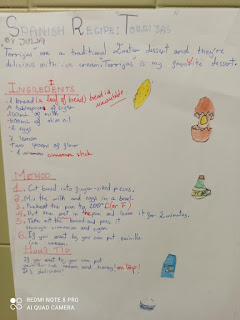 SPANISH RECIPE: TORRIJAS
BY JULIA
"Torrijas" are a traditional Easter dessert and they're
delicious with ice cream. "Torrijas" is my favorite dessert.
INGREDIENTS
1 bread (a loaf of bread) bread is uncountable
4 tablespoons of sugar
of milk
of olive oil
2 eggs
1 lemon
Two spoons of flour
1 cinnamon stick
METHOD
1. Cut bread into finger-sized pieces.
2. Mix the milk and eggs in a bowl.
3. the pan to 200º (C or F)
4. Put them in the pan and leave it for 2 minutes.
5. Take out the bread and pass it
through cinnamon and sugar
6. If you want to you can put vanilla
ice cream.
TIP
If you want to, you can put
vanilla ice cream and honey! on top!
It's delicious!
REDMI NOTE 8 PRO
AI QUAD CAMERA